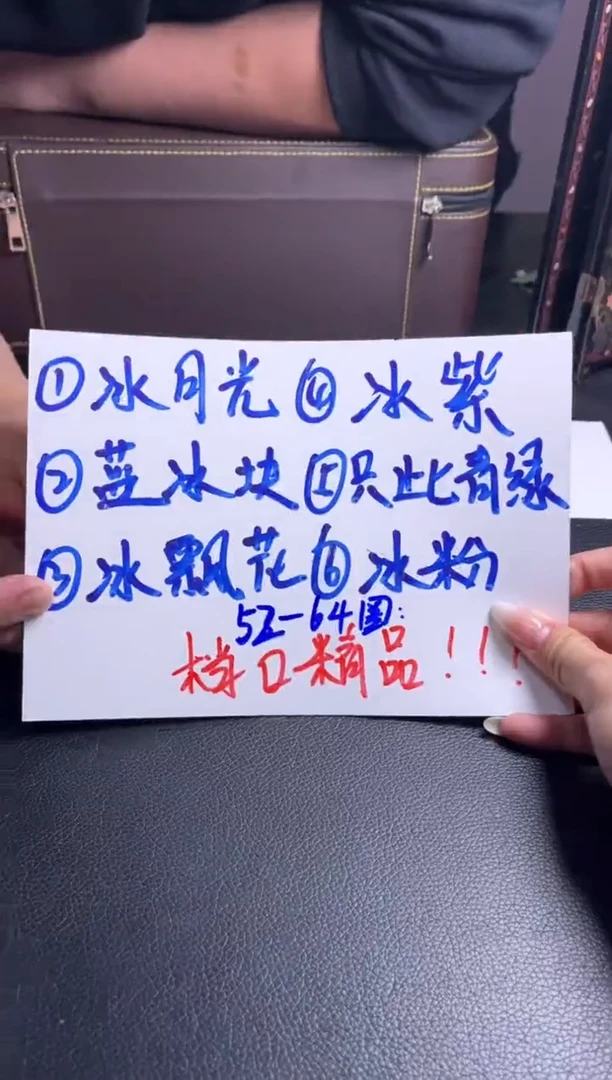 ①冰月光 ④冰紫
②蓝冰块 ⑤只此青绿
③冰飘花 ⑥冰粉
52-64圈:
档口精品!!!